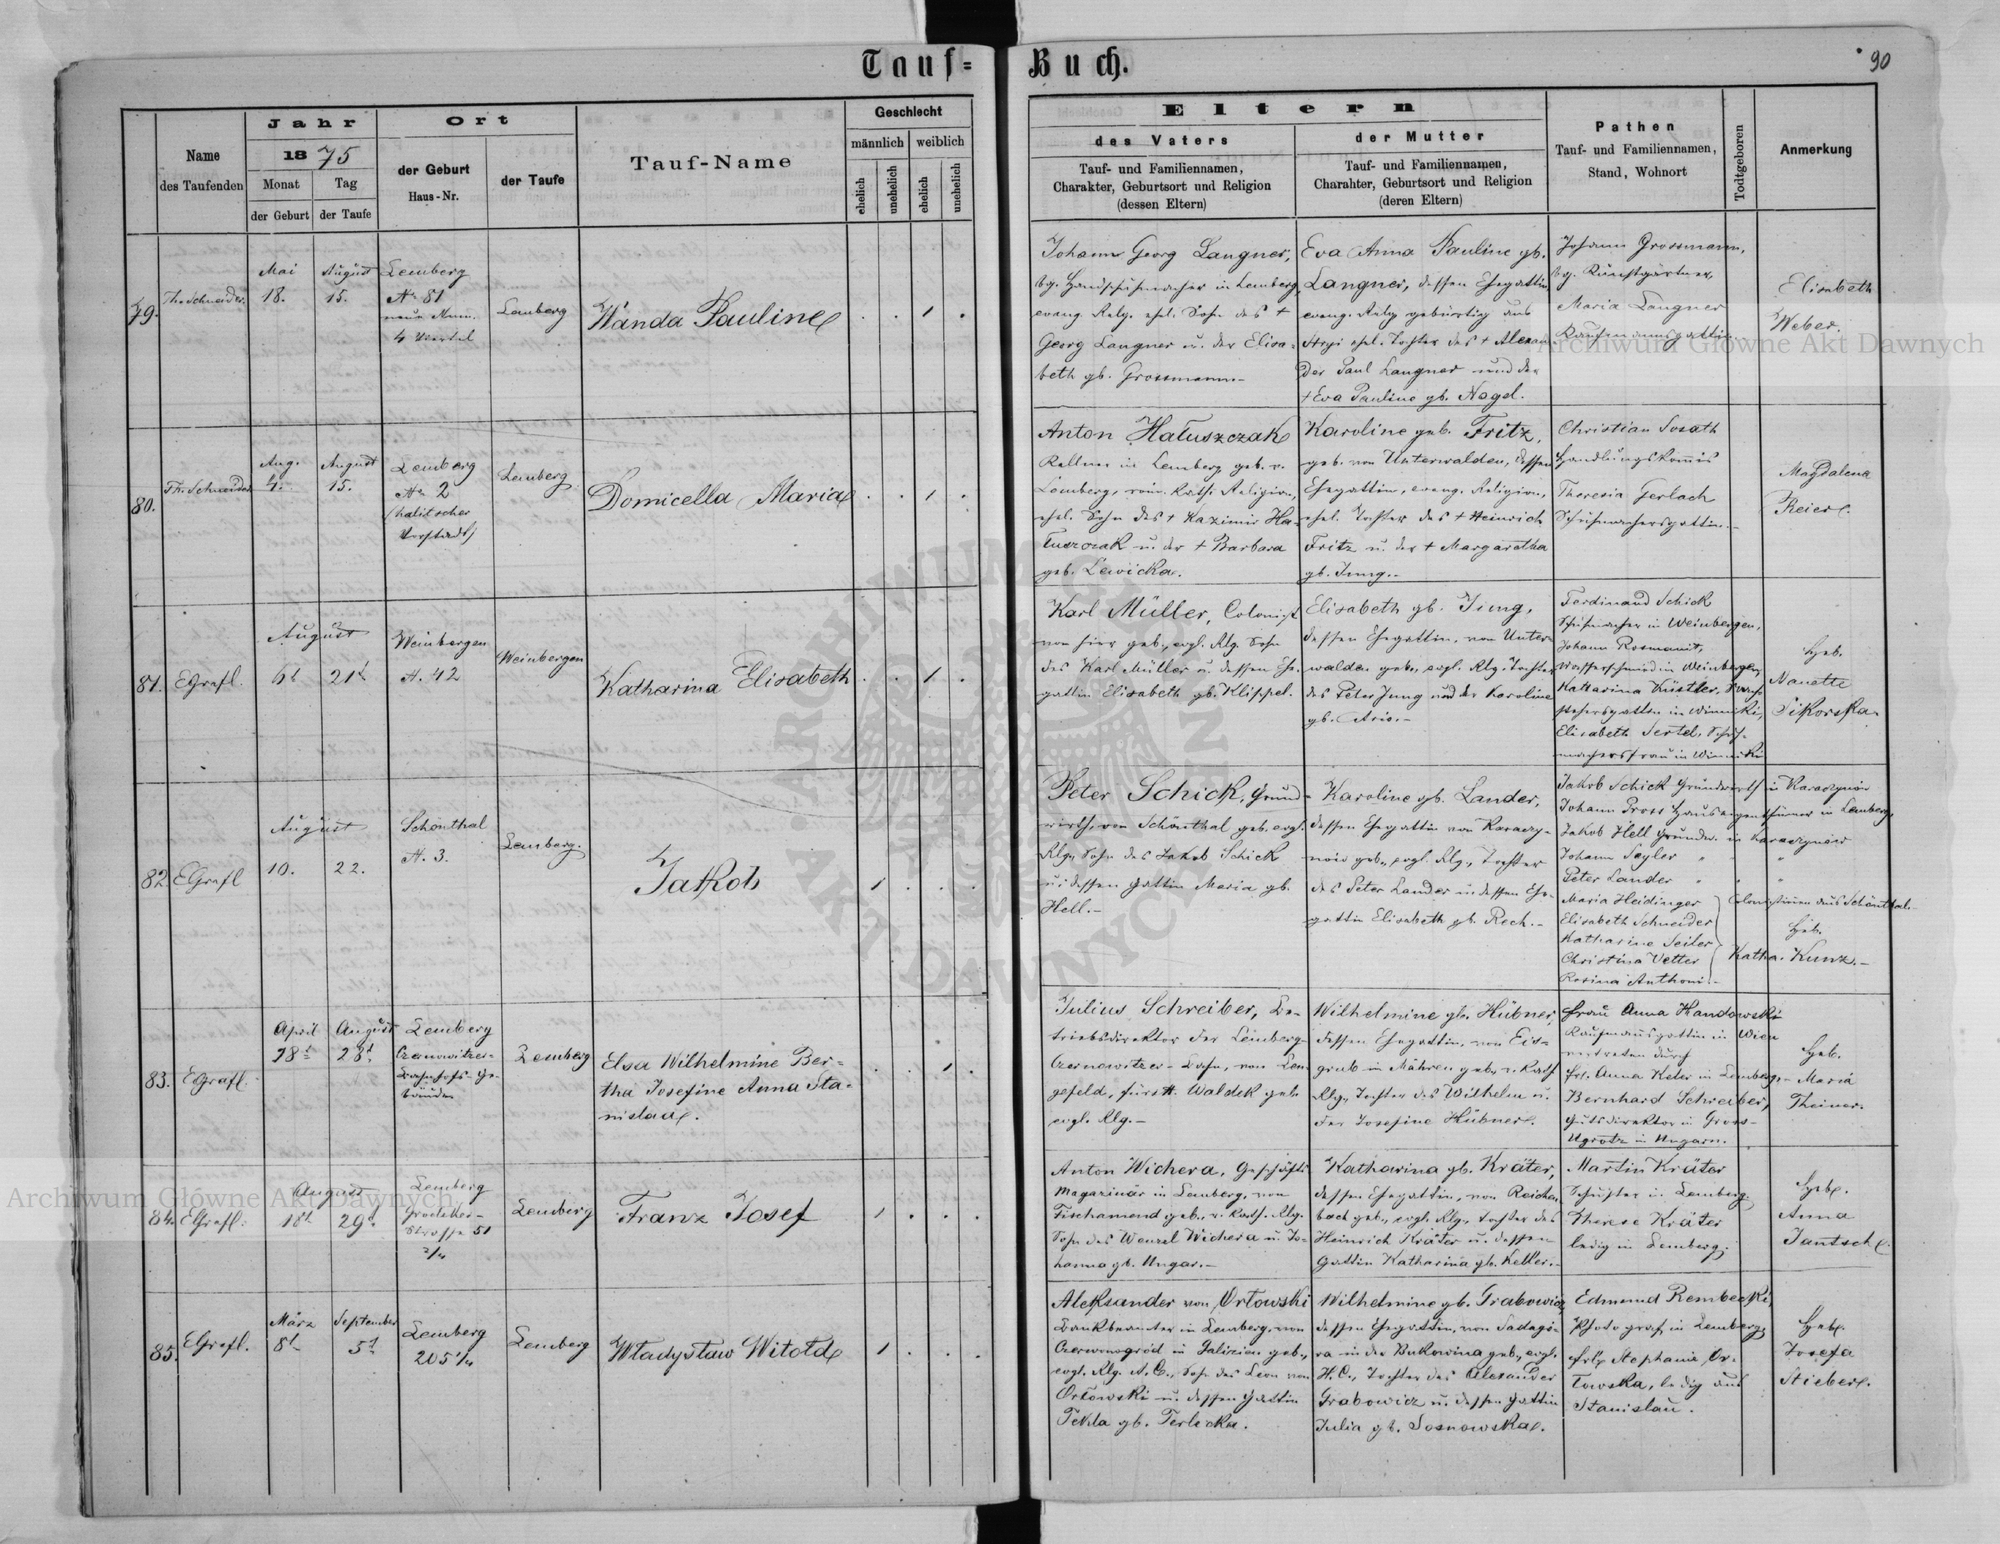 Tauf-Buch.
90
Name
des Taufenden
Jahr
1875
Monat
der Geburt
Tag
der Taufe
Ort
der Geburt
Haus-Nr.
der Taufe
Tauf-Name
Geschlecht
männlich
weiblich
ehelich
unehelich
ehelich
unehelich
Eltern
des Vaters
Tauf- und Familiennamen,
Charakter, Geburtsort und Religion
(dessen Eltern)
der Mutter
Tauf- und Familiennamen,
Charahter, Geburtsort und Religion
(deren Eltern)
Pathen
Tauf- und Familiennamen,
Stand, Wohnort
Todtgeboren
Anmerkung
79.
Th. Schneider.
Mai
18.
August
15.
Lemberg
Nr 81
neue Num.
4 Viertel
Lemberg
Wanda Pauline
Johann Georg Langner,
bg. Handschuhmacher in Lemberg,
evang. Relg. ehel. Sohn des †
Georg Langner u. der Elisa-
beth gb. Grossmann.-
Eva Anna Pauline gb.
Langner, dessen Ehegattin
evang. Relg gebürtig aus
ehel. Tochter des † Alexan-
der Paul Langner und der
† Eva Pauline gb. Nagel.
Johann Grossmann,
bg. Kunstgärtner,
Maria Langner
Kaufmannsgattin
Elisabeth
Weber.
80.
Th. Schneider
Aug.
4.
August
15.
Lemberg
Nr 2
(halitscher
Vorstadt)
Lemberg
Domicella Maria
Anton Hałuszczak
Kellner in Lemberg geb. v.
Lemberg, röm. kath. Religion,
ehel. Sohn des † Kazimir Ha-
łuszczak u. der † Barbara
geb. Lewicka.
Karoline geb. Fritz,
geb. von Unterwalden, dessen
Ehegattin, evang. Religion,
ehel. Tochter des † Heinrich
Fritz u. der † Margaretha
gb. Jung.-
Christian Sosath
Handlungskomis
Theresia Gerlach
Schuhmachersgattin.-
Magdalena
Reier.
81.
EGrafl.
August
6t
21t
Weinbergen
N. 42
Weinbergen
Katharina Elisabeth
Karl Müller, Colonist
von hier geb., evgl. Rlg. Sohn
des Karl Müller u. dessen Ehe-
gattin Elisabeth gb. Klippel.
Elisabeth gb. Jung,
dessen Ehegattin, von Unter-
walden geb., evgl. Rlg. Tochter
des Peter Jung und der Karoline
gb. Aris.-
Ferdinand Schick
Schuhmacher in Weinbergen,
Johann Rosmanit,
Wasserschmied in Weinbergen,
Katharina Küstler,
in Winniki,
Elisabeth Sertel, Schuh-
machersfrau in Winniki
Heb.
Nanette
Sikorska.
82.
EGrafl
August
10.
22.
Schönthal
N. 3.
Lemberg.
Jakob
Peter Schick, Grund-
wirth, von Schönthal geb. evgl.
Rlg., Sohn des Jakob Schick
u. dessen Gattin Maria gb.
Hell.-
Karoline gb. Lander,
dessen Ehegattin von Karaczy-
nów geb., evgl. Rlg., Tochter
des Peter Lander u. dessen Ehe-
gattin Elisabeth gb. Rech.-
Jakob Schick Grundwirth in Karaczynów
Johann Pross Hauseigenthümer in Lemberg,
Jakob Hell Grundw. in Karaczynów
Johann Seyler " "
Peter Lander " "
Maria Heidinger
Elisabeth Schneider
Katharine Seiler
Christina Vetter
Rosina Anthoni.-
Colonistinen aus Schönthal.
Heb.
Katha. Kunz.-
83.
EGrafl.
April
28t
August
28t
Lemberg
Czernowitzer-
Bahnhofs-Ge-
bäude
Lemberg
Elsa Wilhelmine Ber-
tha Josefine Anna Sta-
nislau.
Julius Schreiber, Be-
triebsdirektor der Lemberg-
Czernowitzer-Bahn, von Len-
gefeld, fürstt. Waldek geb.
evgl. Rlg.-
Wilhelmine gb. Hübner,
dessen Ehegattin, von Eis-
grub in Mähren geb., r. kath
Rlg., Tochter des Wilhelm u.
der Josefine Hübner.
Frau Anna Handowski
Kaufmannsgattin in Wien
vertreten durch
Frl. Anna Keler in Lemberg,-
Bernhard Schreiber,
Gutsdirektor in Gross-
Ugrotz in Ungarn.
Heb.
Maria
Theiner.
84.
EGrafl.
August
18t
29t
Lemberg
Grodeker-
Strasse 51
2/4
Lemberg
Franz Josef
Anton Wichera, Geschäfts
Magazinär in Lemberg, von
Fischamend geb., r. kath. Rlg.
Sohn des Wenzel Wichera u. Jo-
hanna gb. Ungar.-
Katharina gb. Kräter,
dessen Ehegattin, von Reichen
bach geb., evgl. Rlg., Tochter des
Heinrich Kräter u. dessen
Gattin Katharina gb. Keller.-
Martin Kräter
Schuster in Lemberg
Therese Kräter
ledig in Lemberg.
Heb.
Anna
Jantsch.
85.
EGrafl.
März
8t
September
5t
Lemberg
205 1/4
Lemberg
Władysław Witold
Aleksander von Orłowski
Bankbeamter in Lemberg, von
Czerwonogród in Galizien geb.,
evgl. Rlg. A. C., Sohn des Leon von
Orłowski u. dessen Gattin
Tekla gb. Terlecka.
Wilhelmine gb. Grabowicz,
dessen Ehegattin, von Sadago-
ra in der Bukowina geb., evgl.
H. C., Tochter des Alexander
Grabowicz u. dessen Gattin
Julia gb. Sosnowska.
Edmund Rembecki,
Photograf in Lemberg
Frl. Stephanie Or-
łowska, ledig aus
Stanislau.
Heb.
Josefa
Stieber.
Archiwum Główne Akt Dawnych
Archiwum Główne Akt Dawnych
ARCHIWUM GŁÓWNE AKT DAWNYCH